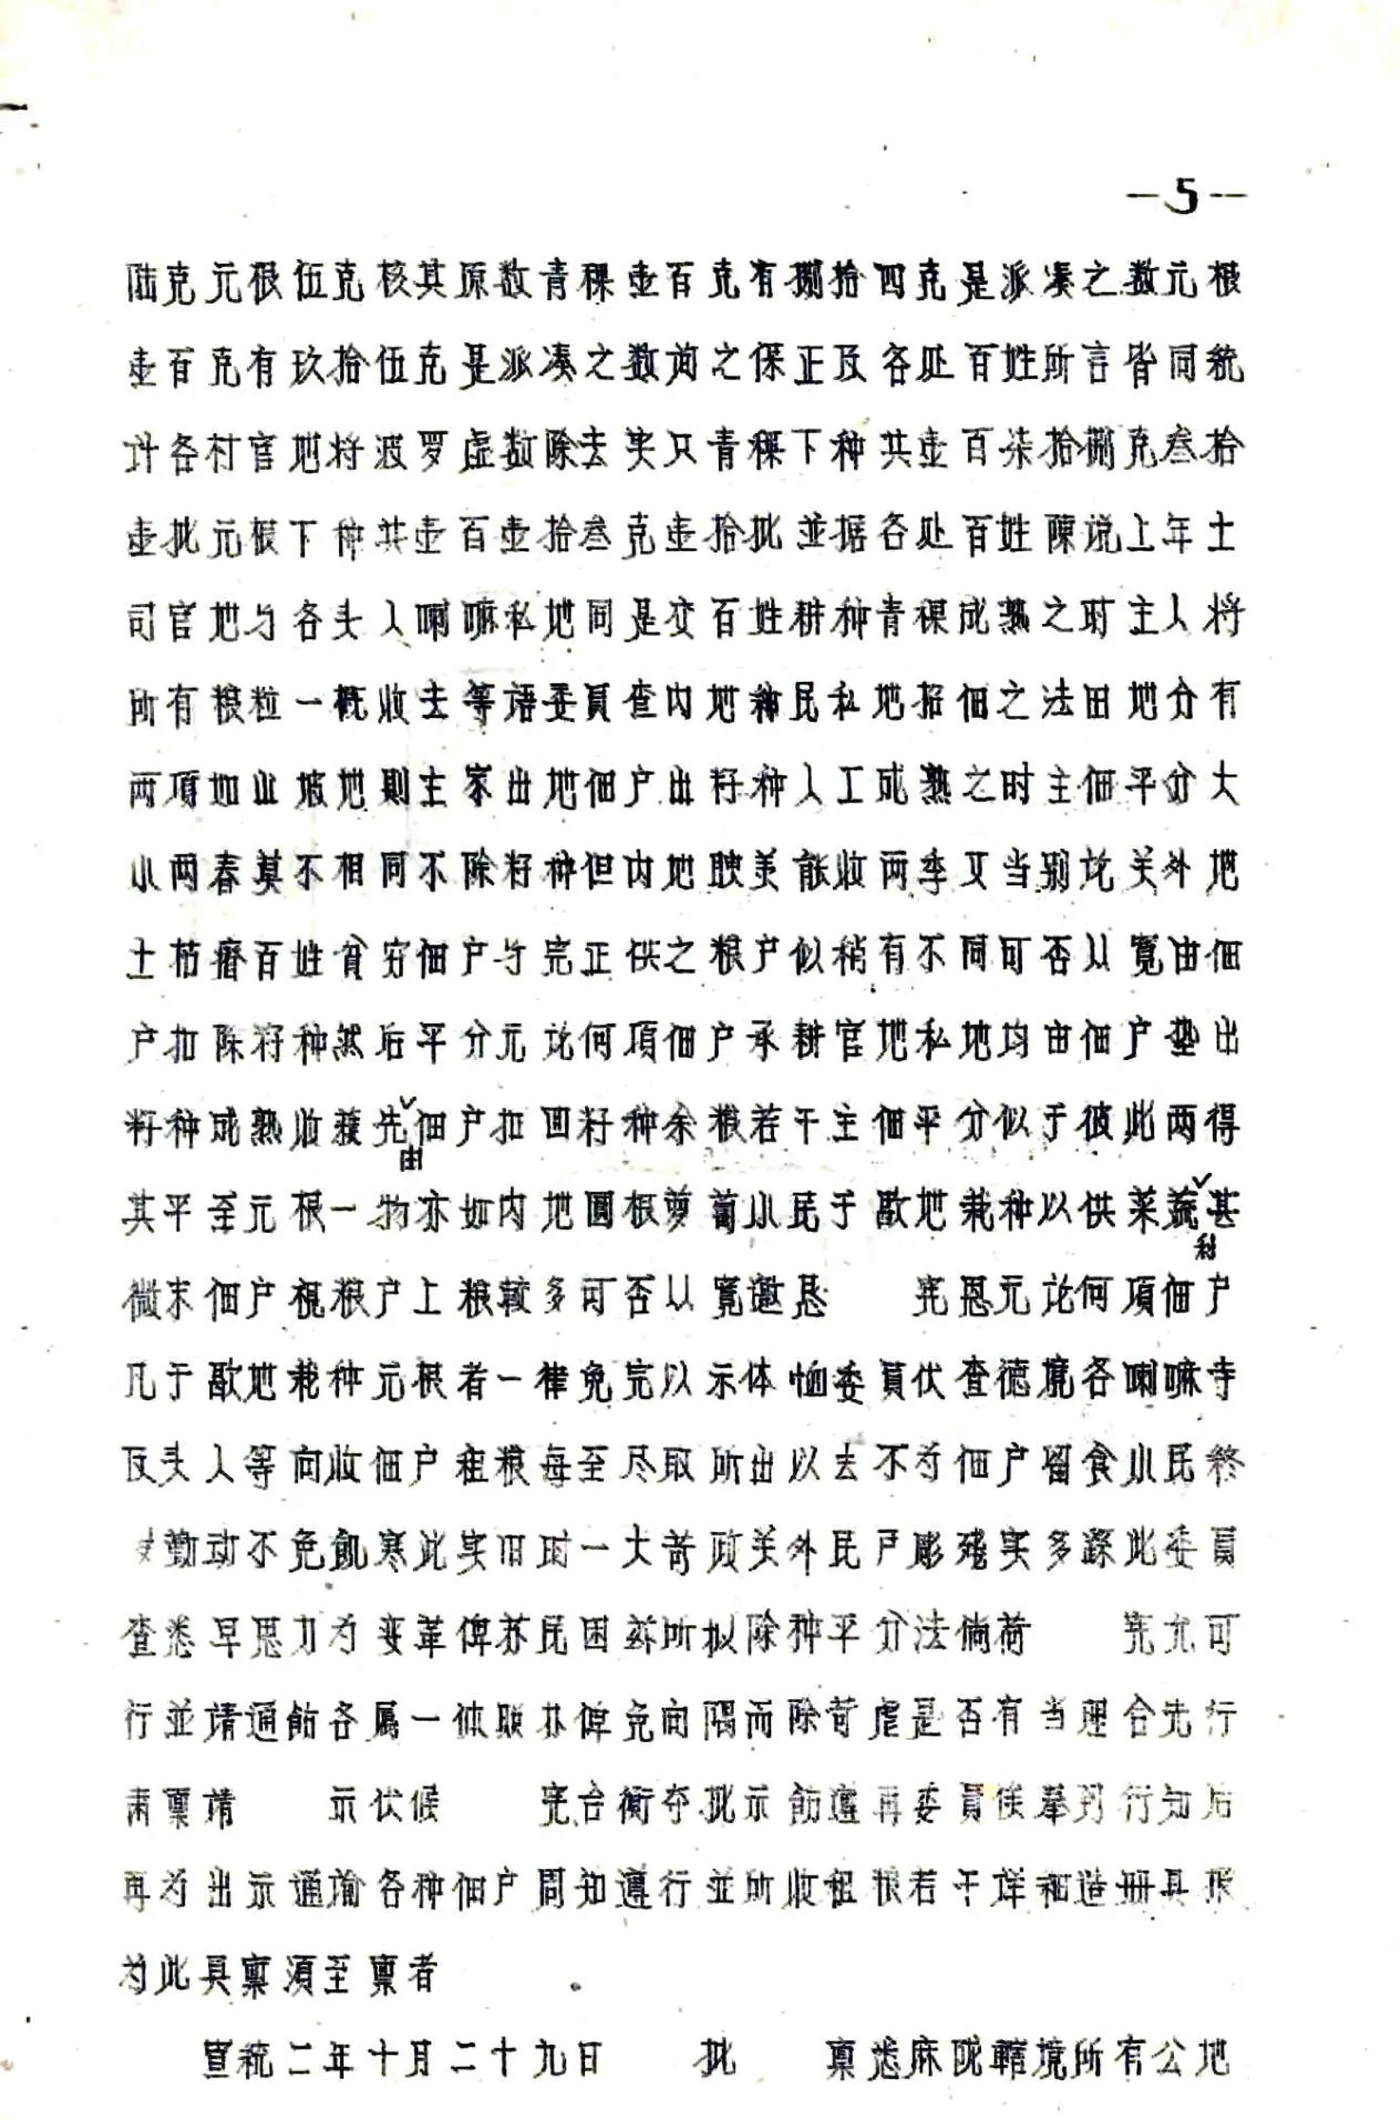 —5—
陆克元根伍克核其原数青稞壶百克有捌拾四克是派凑之数元根
壶百克有玖拾伍克是派凑之数询之保正及各处百姓所言皆同统
计各村官地将波罗虚数除去实只青稞下种共壶百柒拾捌克叁拾
壶批元根下种共壶百壶拾叁克壶拾批並据各处百姓陳说上年土
司官地与各头人喇嘛私地同是交百姓耕种青稞成熟之时主人将
所有粮粒一概收去等语委員查内地种民私地招佃之法田地分有
两項如山坡地则主家出地佃户出籽种人工成熟之时主佃平分大
小两春莫不相同不除籽种但内地腴美能收两季又当别论关外地
土枯瘠百姓貧穷佃户与完正供之粮户似稍有不同可否从寬由佃
户扣除籽种然后平分元论何項佃户承耕官地私地均由佃户垫出
籽种成熟收获先由佃户扣回籽种余粮若干主佃平分似于彼此两得
其平至元根一物亦如内地圆根萝蔔小民于歇地栽种以供菜蔬利甚
微末佃户視粮户上粮較多可否从寬邀恳 宪恩元论何項佃户
凡于歇地栽种元根者一律免完以示体恤委員伏查德境各喇嘛寺
及头人等向收佃户租粮每至尽取所出以去不为佃户留食小民終
岁勤动不免飢寒此实旧时一大苛政关外民户彫残实多踩此委員
查悉早思力为変革俾苏民困茲所拟除种平分法倘荷 宪允可
行並请通飭各属一体联办俾免向隅而除苛虐是否有当理合先行
肃稟请 示伏候 宪台衡夺批示飭遵再委員俟奉到行知后
再为出示通瑜各种佃户周知遵行並所收租根若干详細造冊具报
为此具稟須至稟者
宣統二年十月二十九日 批 稟悉麻陇轄境所有公地